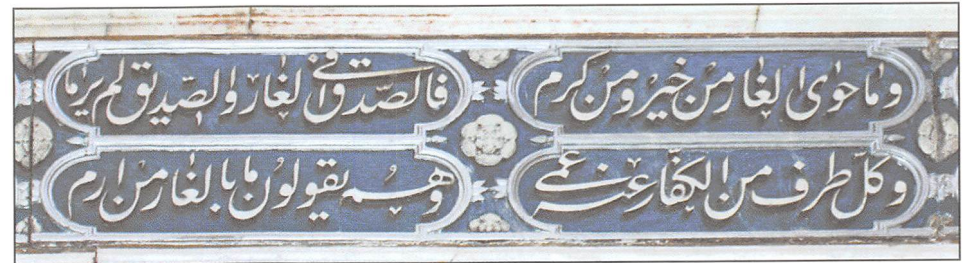 وما حوى الغار من خير ومن كرم
وكلّ طرف من الكفّار عنه عمى
فالصّدق فى الغار والصّديق لم يرما
وهم يقولون ما بالغار من ارم